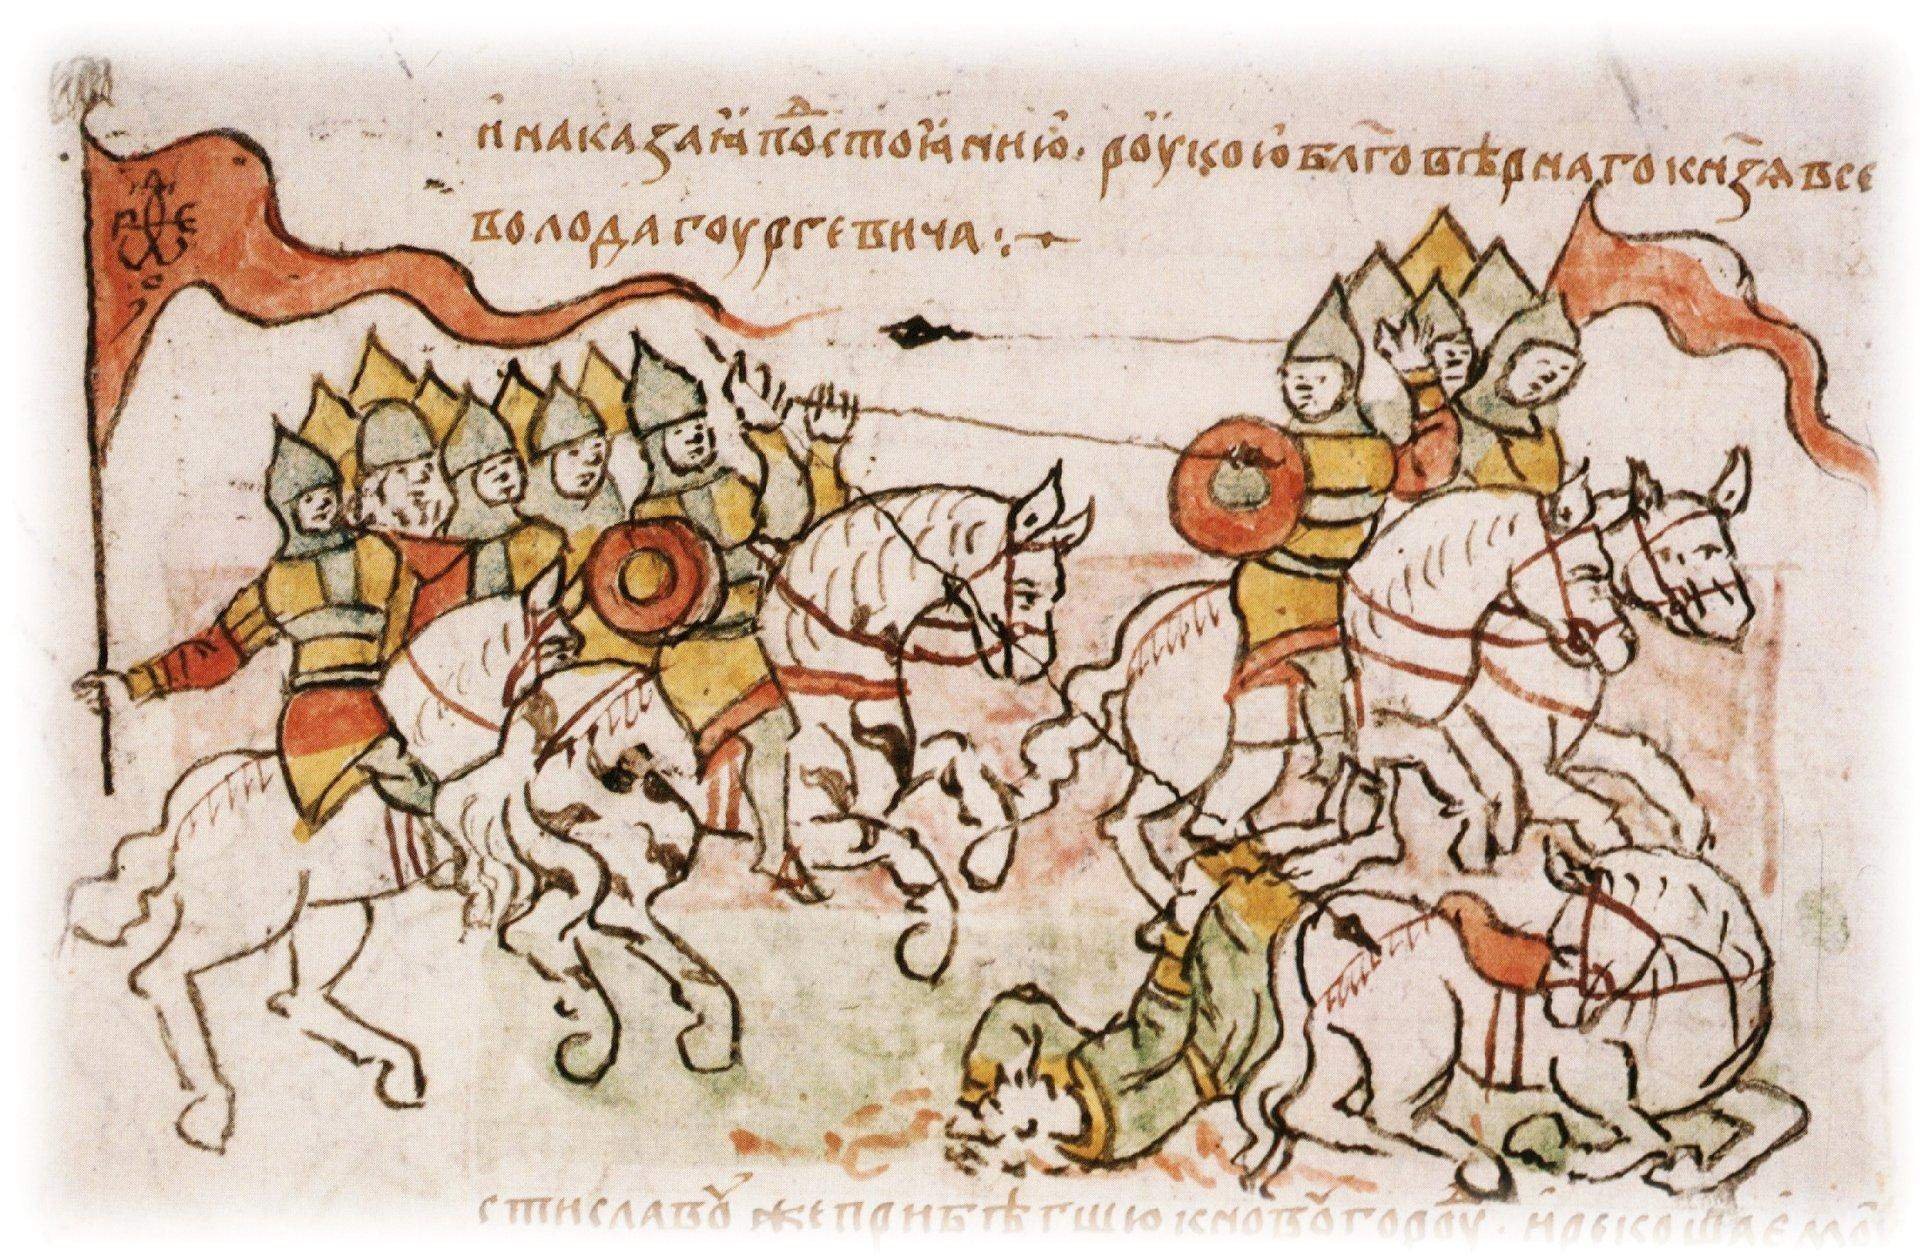 и наказаꙗ по достоꙗнию. рꙋкою блг҃овѣрнаго кнѧзѧ все
володагоургевича :~
стиславꙋ же прибѣгшю к новꙋгородꙋ. и